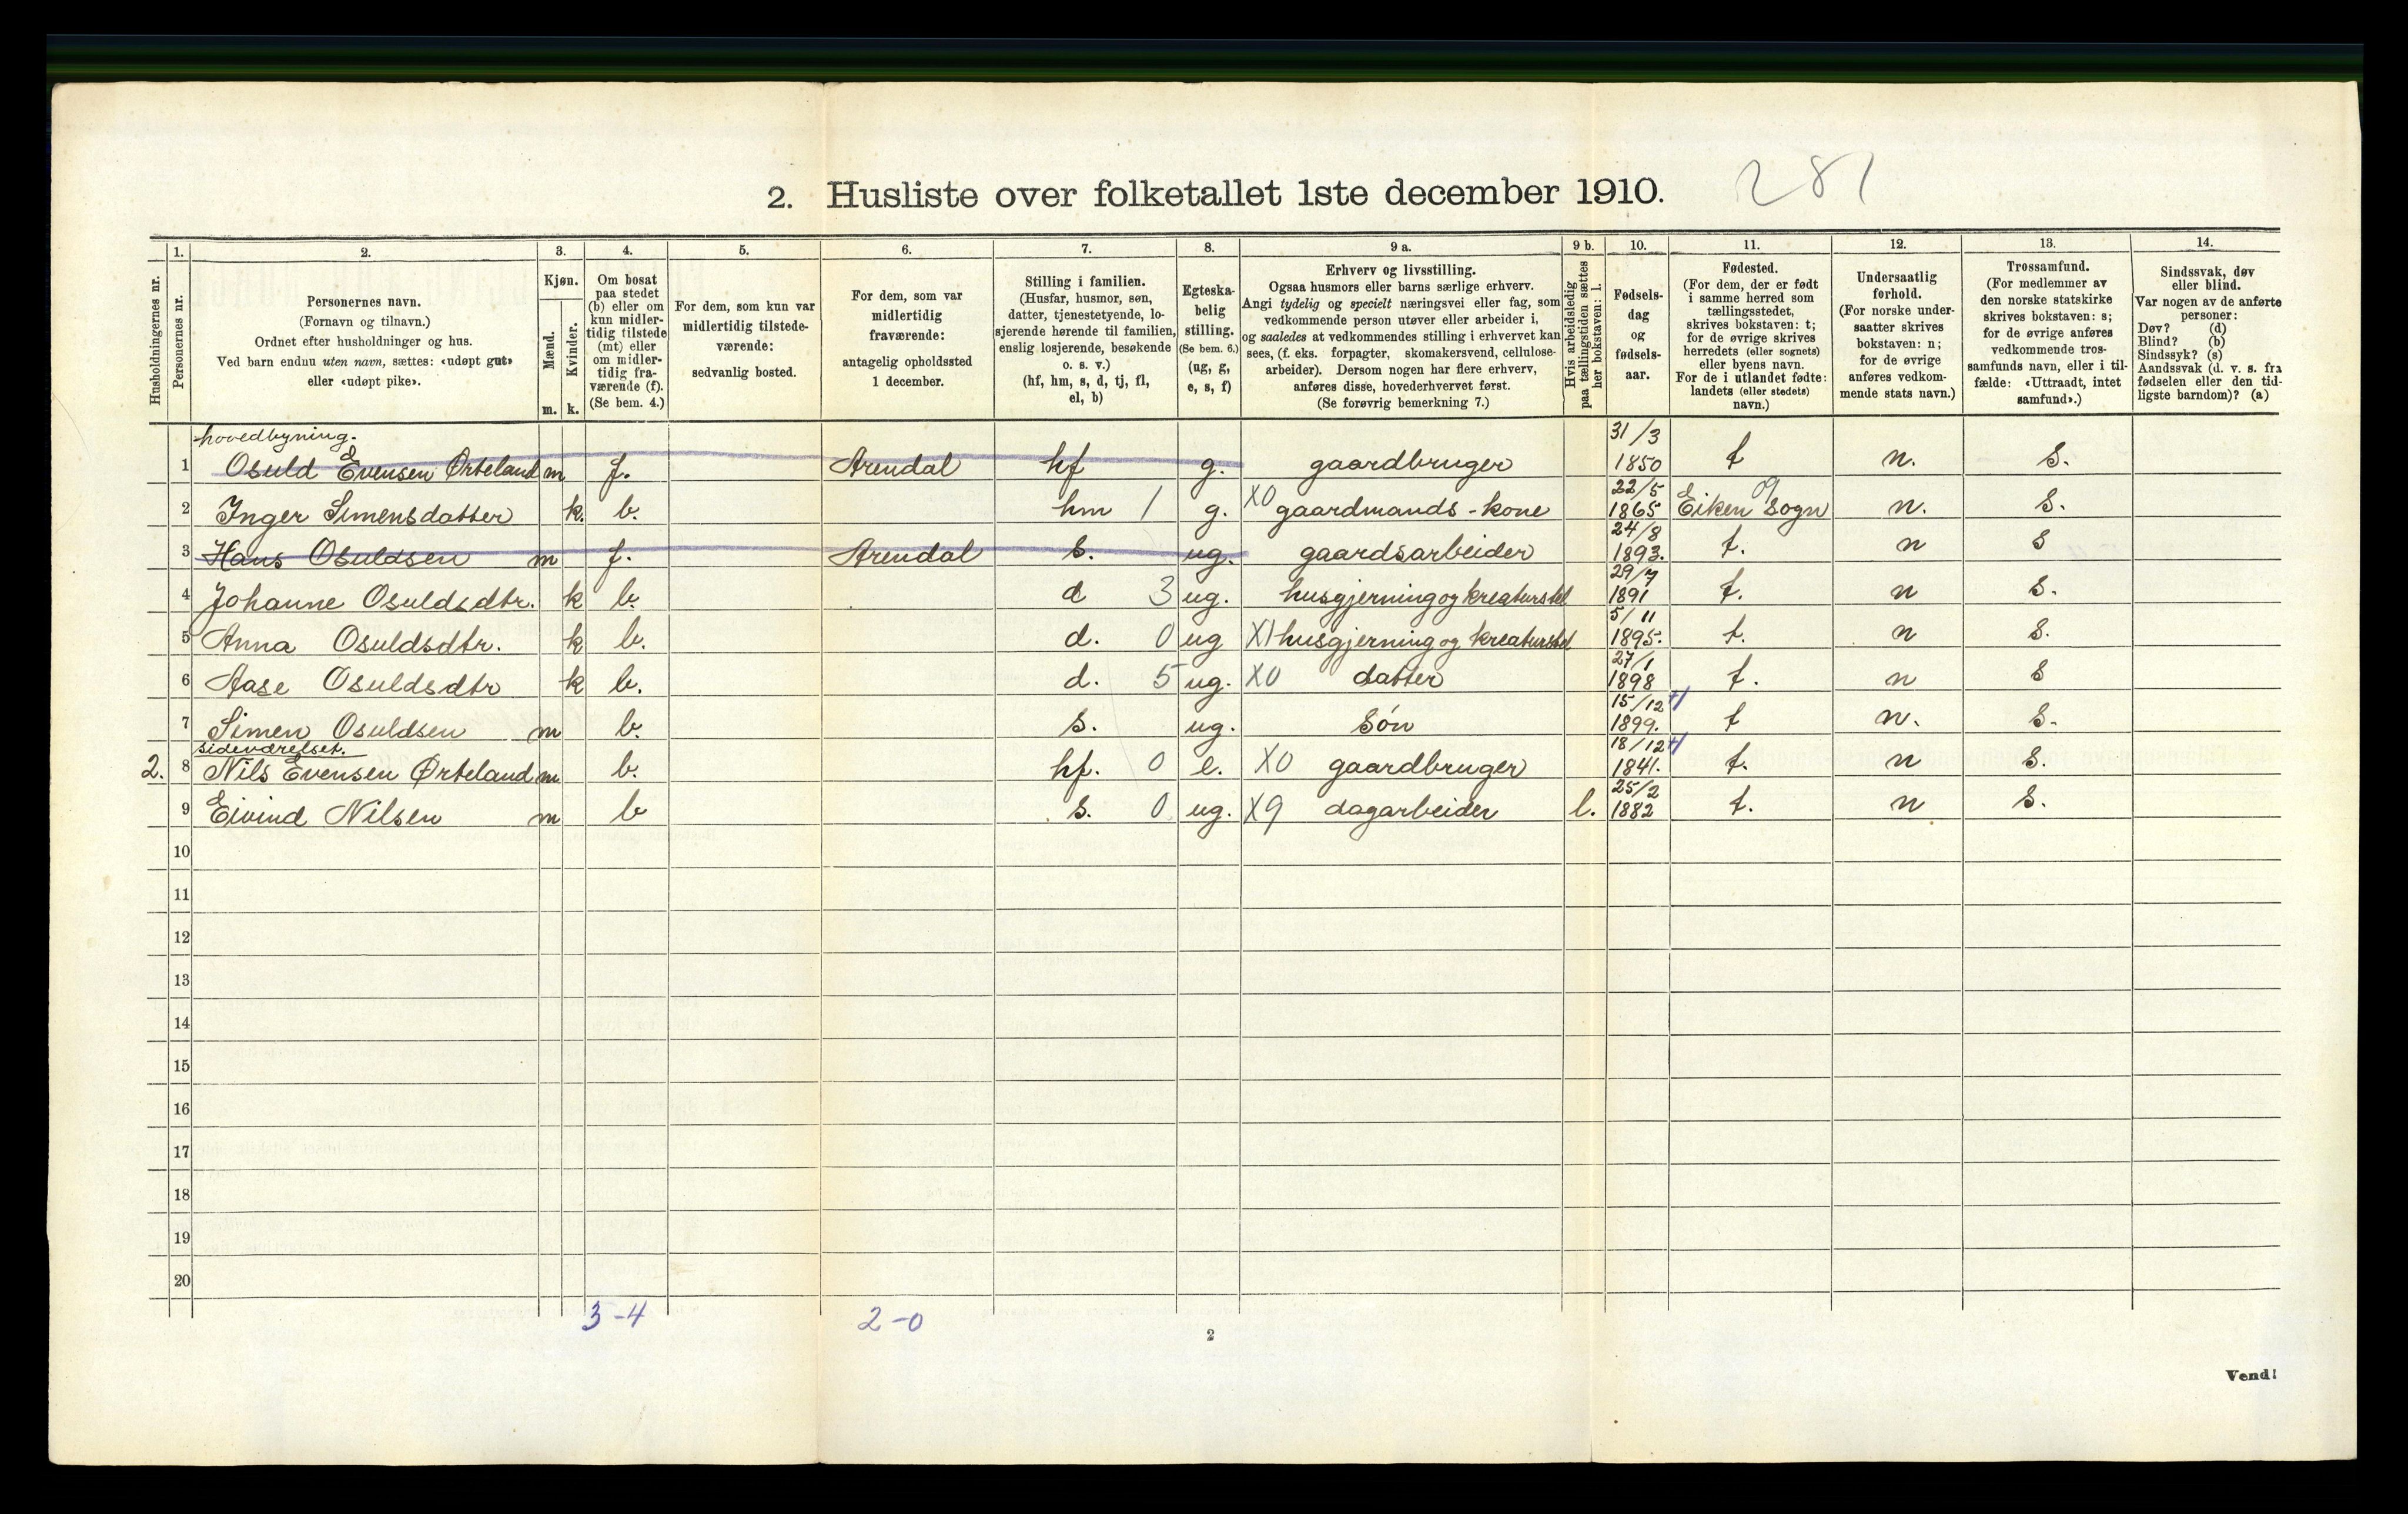 2. Husliste over folketallet 1ste december 1910. 281
1. 2. 3. 4. 5. 6. 7. 8. 9 a. 9 b. 10. 11. 12. 13. 14.
Husholdningernes nr.
Personernes nr.
Personernes navn.
(Fornavn og tilnavn.)
Ordnet efter husholdninger og hus.
Ved barn endnu uten navn, sættes: «udøpt gut»
eller «udøpt pike».
Kjøn.
Mænd.
Kvinder.
m. k.
Om bosat
paa stedet
(b) eller om
kun midler-
tidig tilstede
(mt) eller
om midler-
tidig fra-
værende (f).
(Se bem. 4.)
For dem, som kun var
midlertidig tilstede-
værende:
sedvanlig bosted.
For dem, som var
midlertidig
fraværende:
antagelig opholdssted
1 december.
Stilling i familien.
(Husfar, husmor, søn,
datter, tjenestetyende, lo-
sjerende hørende til familien,
enslig losjerende, besøkende
o. s. v.)
(hf, hm, s, d, tj, fl,
el, b)
Egteska-
belig
stilling.
(Se bem. 6.)
(ug, g,
e, s, f)
Erhverv og livsstilling.
Ogsaa husmors eller barns særlige erhverv.
Angi tydelig og specielt næringsvei eller fag, som
vedkommende person utøver eller arbeider i,
og saaledes at vedkommendes stilling i erhvervet kan
sees, (f. eks. forpagter, skomakersvend, cellulose-
arbeider). Dersom nogen har flere erhverv,
anføres disse, hovederhvervet først.
(Se forøvrig bemerkning 7.)
Hvis arbeidsledig
paa tællingstiden sættes
her bokstaven: l.
Fødsels-
dag
og
fødsels-
aar.
Fødested.
(For dem, der er født
i samme herred som
tællingsstedet,
skrives bokstaven: t;
for de øvrige skrives
herredets (eller sognets)
eller byens navn.
For de i utlandet fødte:
landets (eller stedets)
navn.)
Undersaatlig
forhold.
(For norske under-
saatter skrives
bokstaven: n;
for de øvrige
anføres vedkom-
mende stats navn.)
Trossamfund.
(For medlemmer av
den norske statskirke
skrives bokstaven: s;
for de øvrige anføres
vedkommende tros-
samfunds navn, eller i til-
fælde: «Uttraadt, intet
samfund».)
Sindssvak, døv
eller blind.
Var nogen av de anførte
personer:
Døv? (d)
Blind? (b)
Sindssyk? (s)
Aandssvak (d. v. s. fra
fødselen eller den tid-
ligste barndom)? (a)
hovedbyning.
1 Osuld Evensen Ørteland m f. Arendal hf g. gaardbruger 31/3 1850 t n. s.
2 Inger Simensdatter k. b. hm 1 g. X0 gaardmands-kone 22/5 1865 Eiken sogn 09 n. s.
3 Hans Osuldsen m f. Arendal s. ug. gaardsarbeider 24/8 1893. t. n s
4 Johanne Osuldsdtr. k b. d 3 ug. husgjerning og kreaturstel 29/7 1891 t. n s.
5 Anna Osuldsdtr. k b. d. 0 ug X1 husgjerning og kreaturstel 5/11 1895. t. n s.
6 Aase Osuldsdtr k b. d. 5 ug. X0 datter 27/1 1898 t. n s
7 Simen Osuldsen m b. s. ug. Søn 15/12 1899. t n. s.
sideværelset.
2. 8 Nils Evensen Ørteland m b. hf. 0 e. X0 gaardbruger 18/12 1841. t. n s.
9 Eivind Nilsen m b s. 0 ug. X9 dagarbeider l. 25/2 1882 t. n s.
10
11
12
13
14
15
16
17
18
19
20
3-4 2-0
2
Vend!